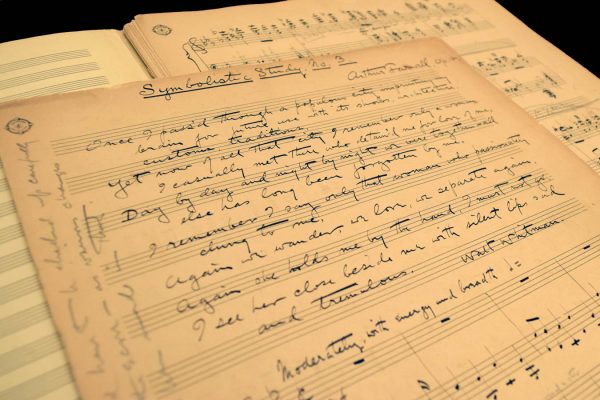 Symbolistic Study, No. 3
Arthur Farwell
Once I pass'd through a populous city imprinting my
brain for future use with its shows, architecture,
customs, traditions,
Yet now of all that city I remember only a woman
I casually met there who detain'd me for love of me,
Day by day and night by night we were together — all
else has long been forgotten by me.
I remember I say only that woman who passionately
clung to me.
Again we wander, we love, we separate again
Again she holds me by the hand, I must not go
I see her close beside me with silent lips sad
and tremulous. Walt Whitman.
Moderately, with energy and breadth